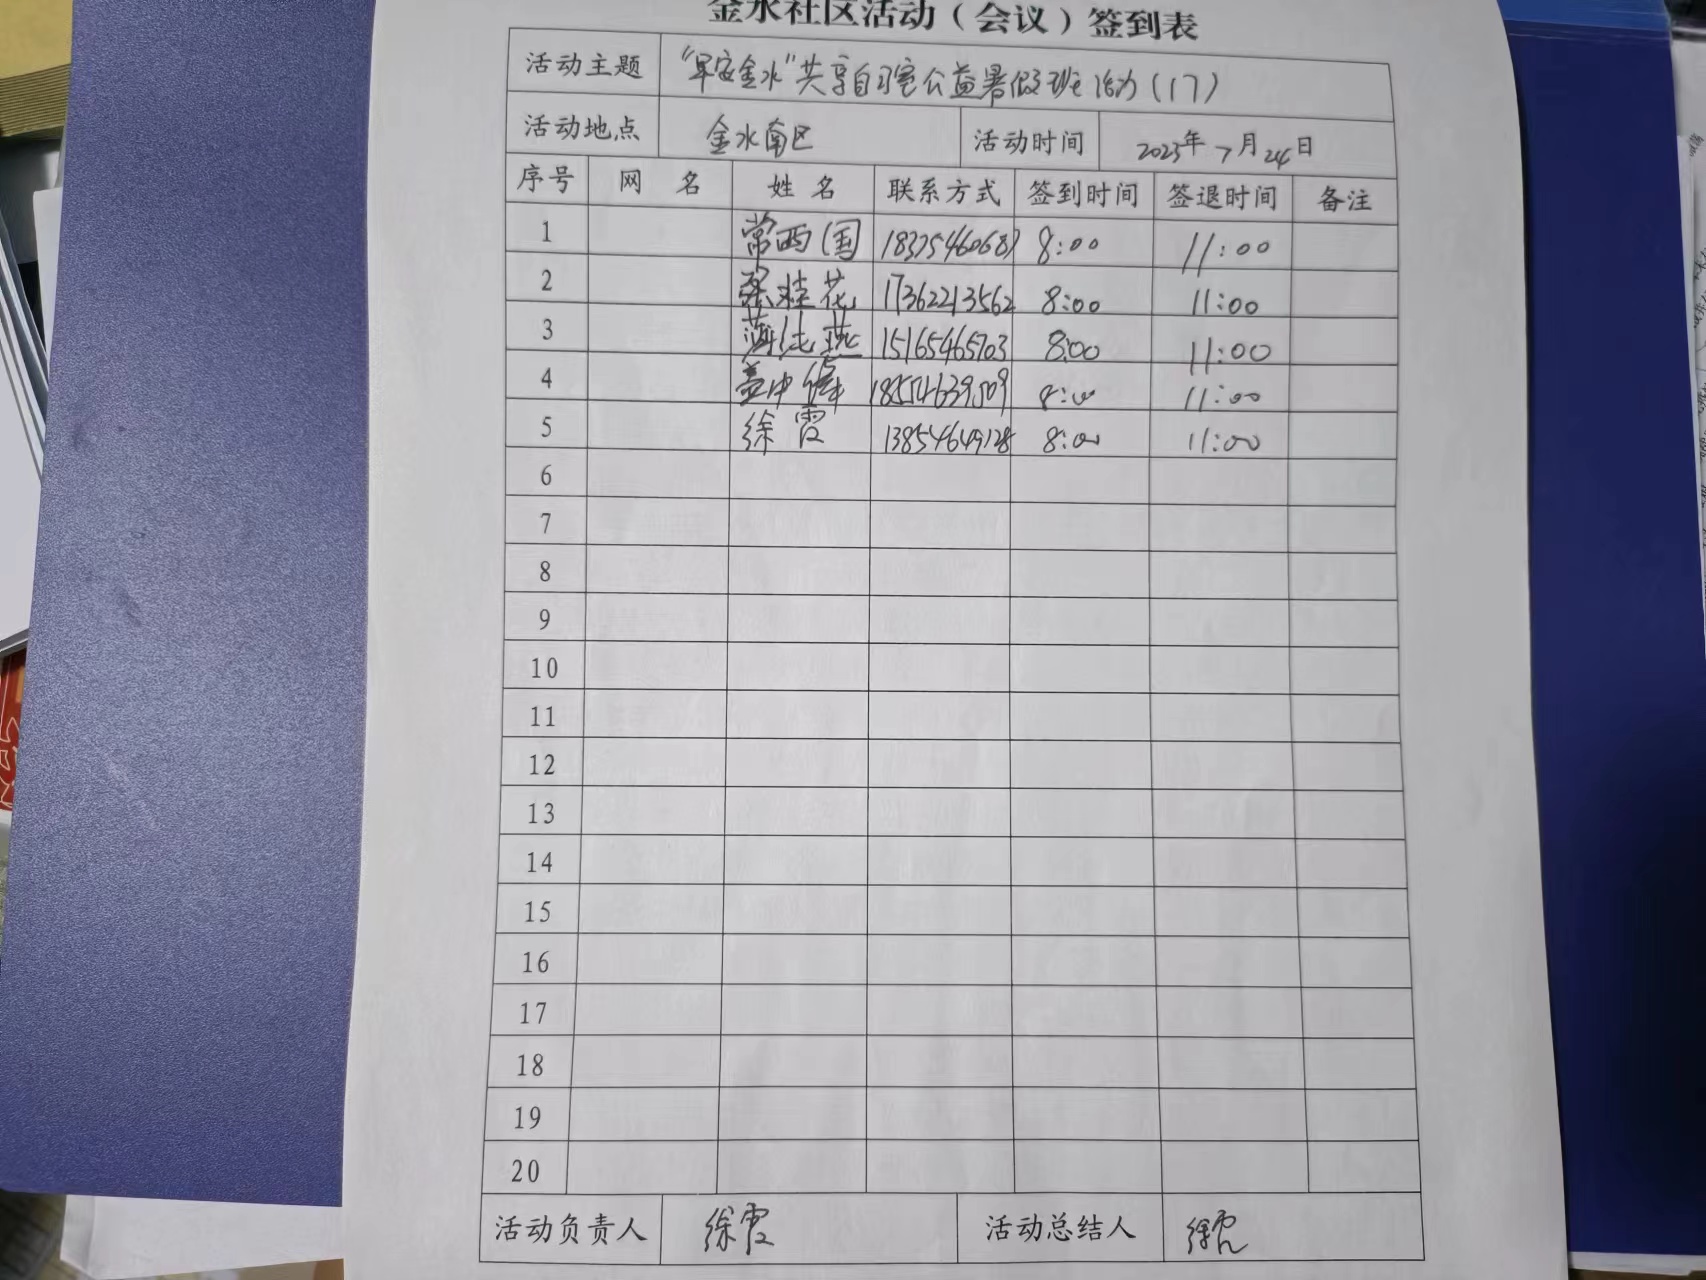 金水社区活动（会议）签到表
活动主题 “早安金水”共享自习室公益暑假班活动（17）
活动地点 金水南区 活动时间 2023年7月24日
序号 网 名 姓 名 联系方式 签到时间 签退时间 备注
1 常西国 18375460687 8:00 11:00
2 张桂花 17362213562 8:00 11:00
3 燕 15165465703 8:00 11:00
4 盖中 18554639509 8:00 11:00
5 徐霞 13854649128 8:00 11:00
6
7
8
9
10
11
12
13
14
15
16
17
18
19
20
活动负责人 徐霞 活动总结人 徐霞